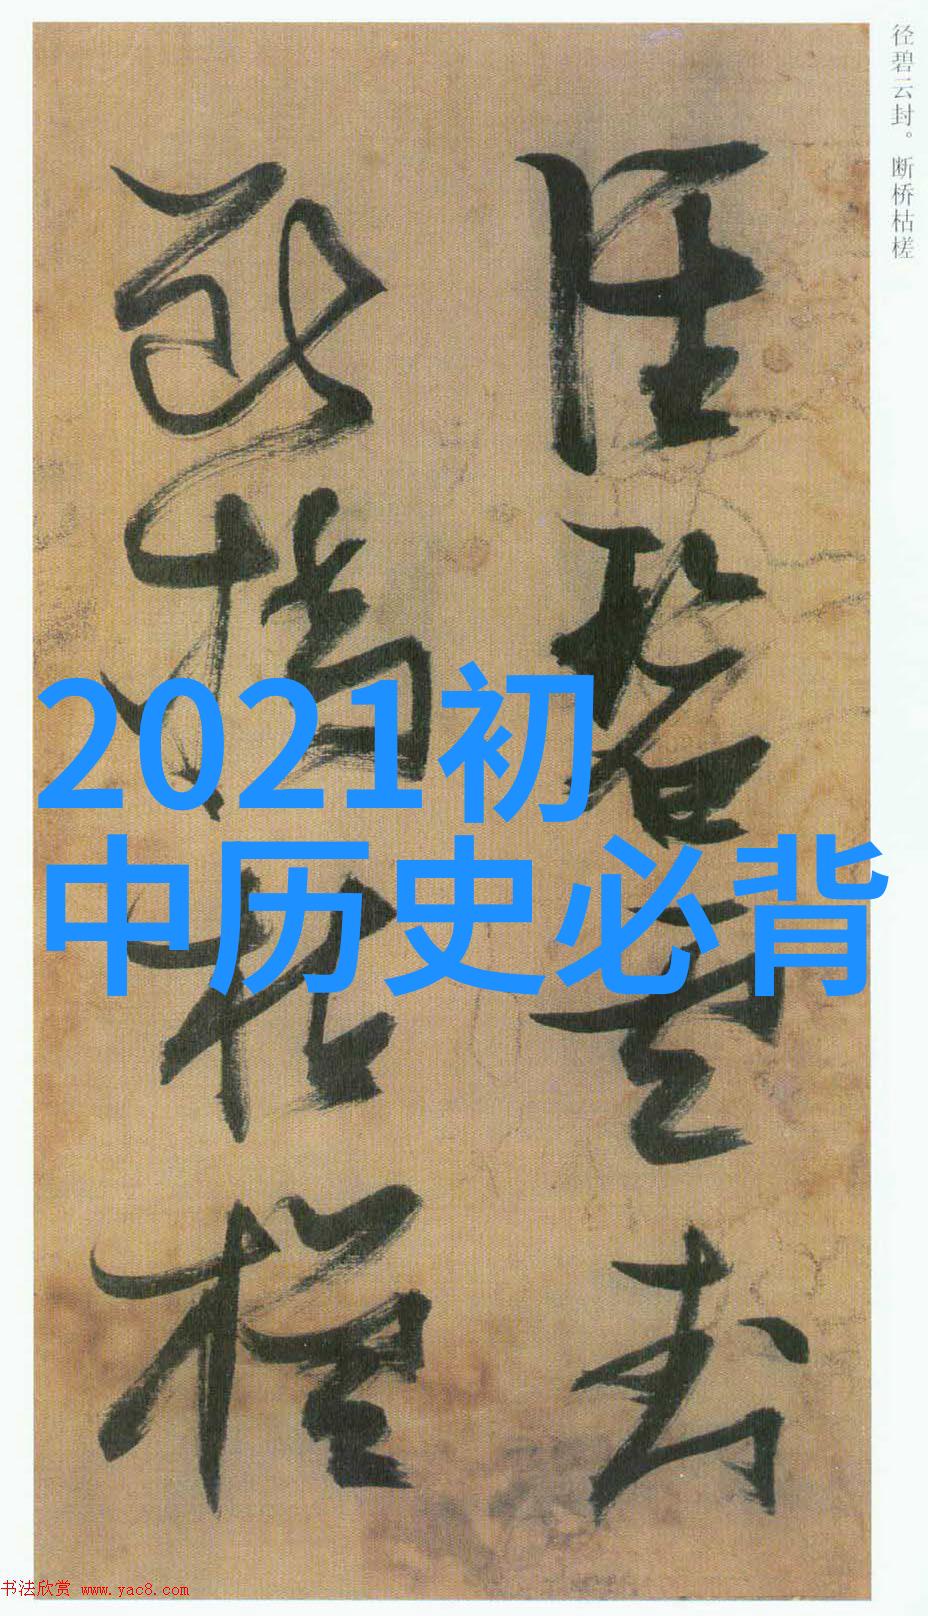 径碧云封。断桥枯槎
徑碧雲封
断橋枯槎
2021初
中历史必背
书法欣赏 www.yac8.com